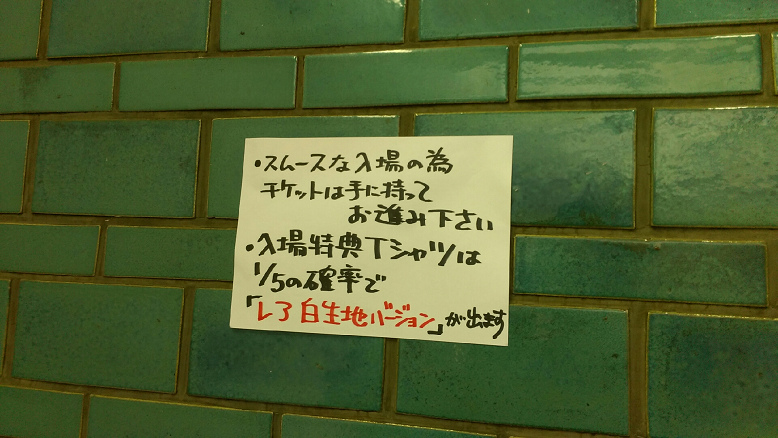 ・スムースな入場の為
チケットは手に持って
お進み下さい
・入場特典Tシャツは
1/5の確率で
「レア白生地バージョン」が出ます